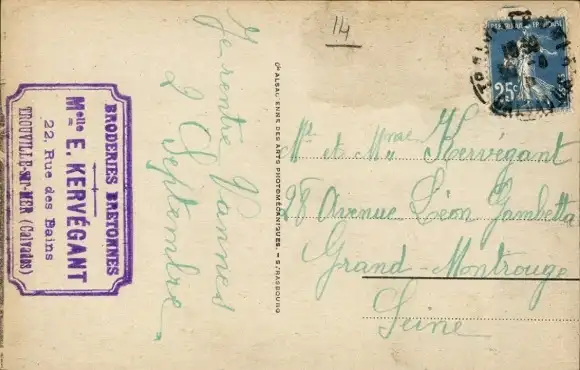 14
BRODERIES BRETONNES
Melle E. KERVÉGANT
22, Rue des Bains
TROUVILLE-sur-MER (Calvados)
Je rentre Vannes
2 Septembre
Cie ALSACIENNE DES ARTS PHOTOMÉCANIQUES. - STRASBOURG
25c
Mr et Mme Kervégant
28 Avenue Léon Gambetta
Grand-Montrouge
Seine